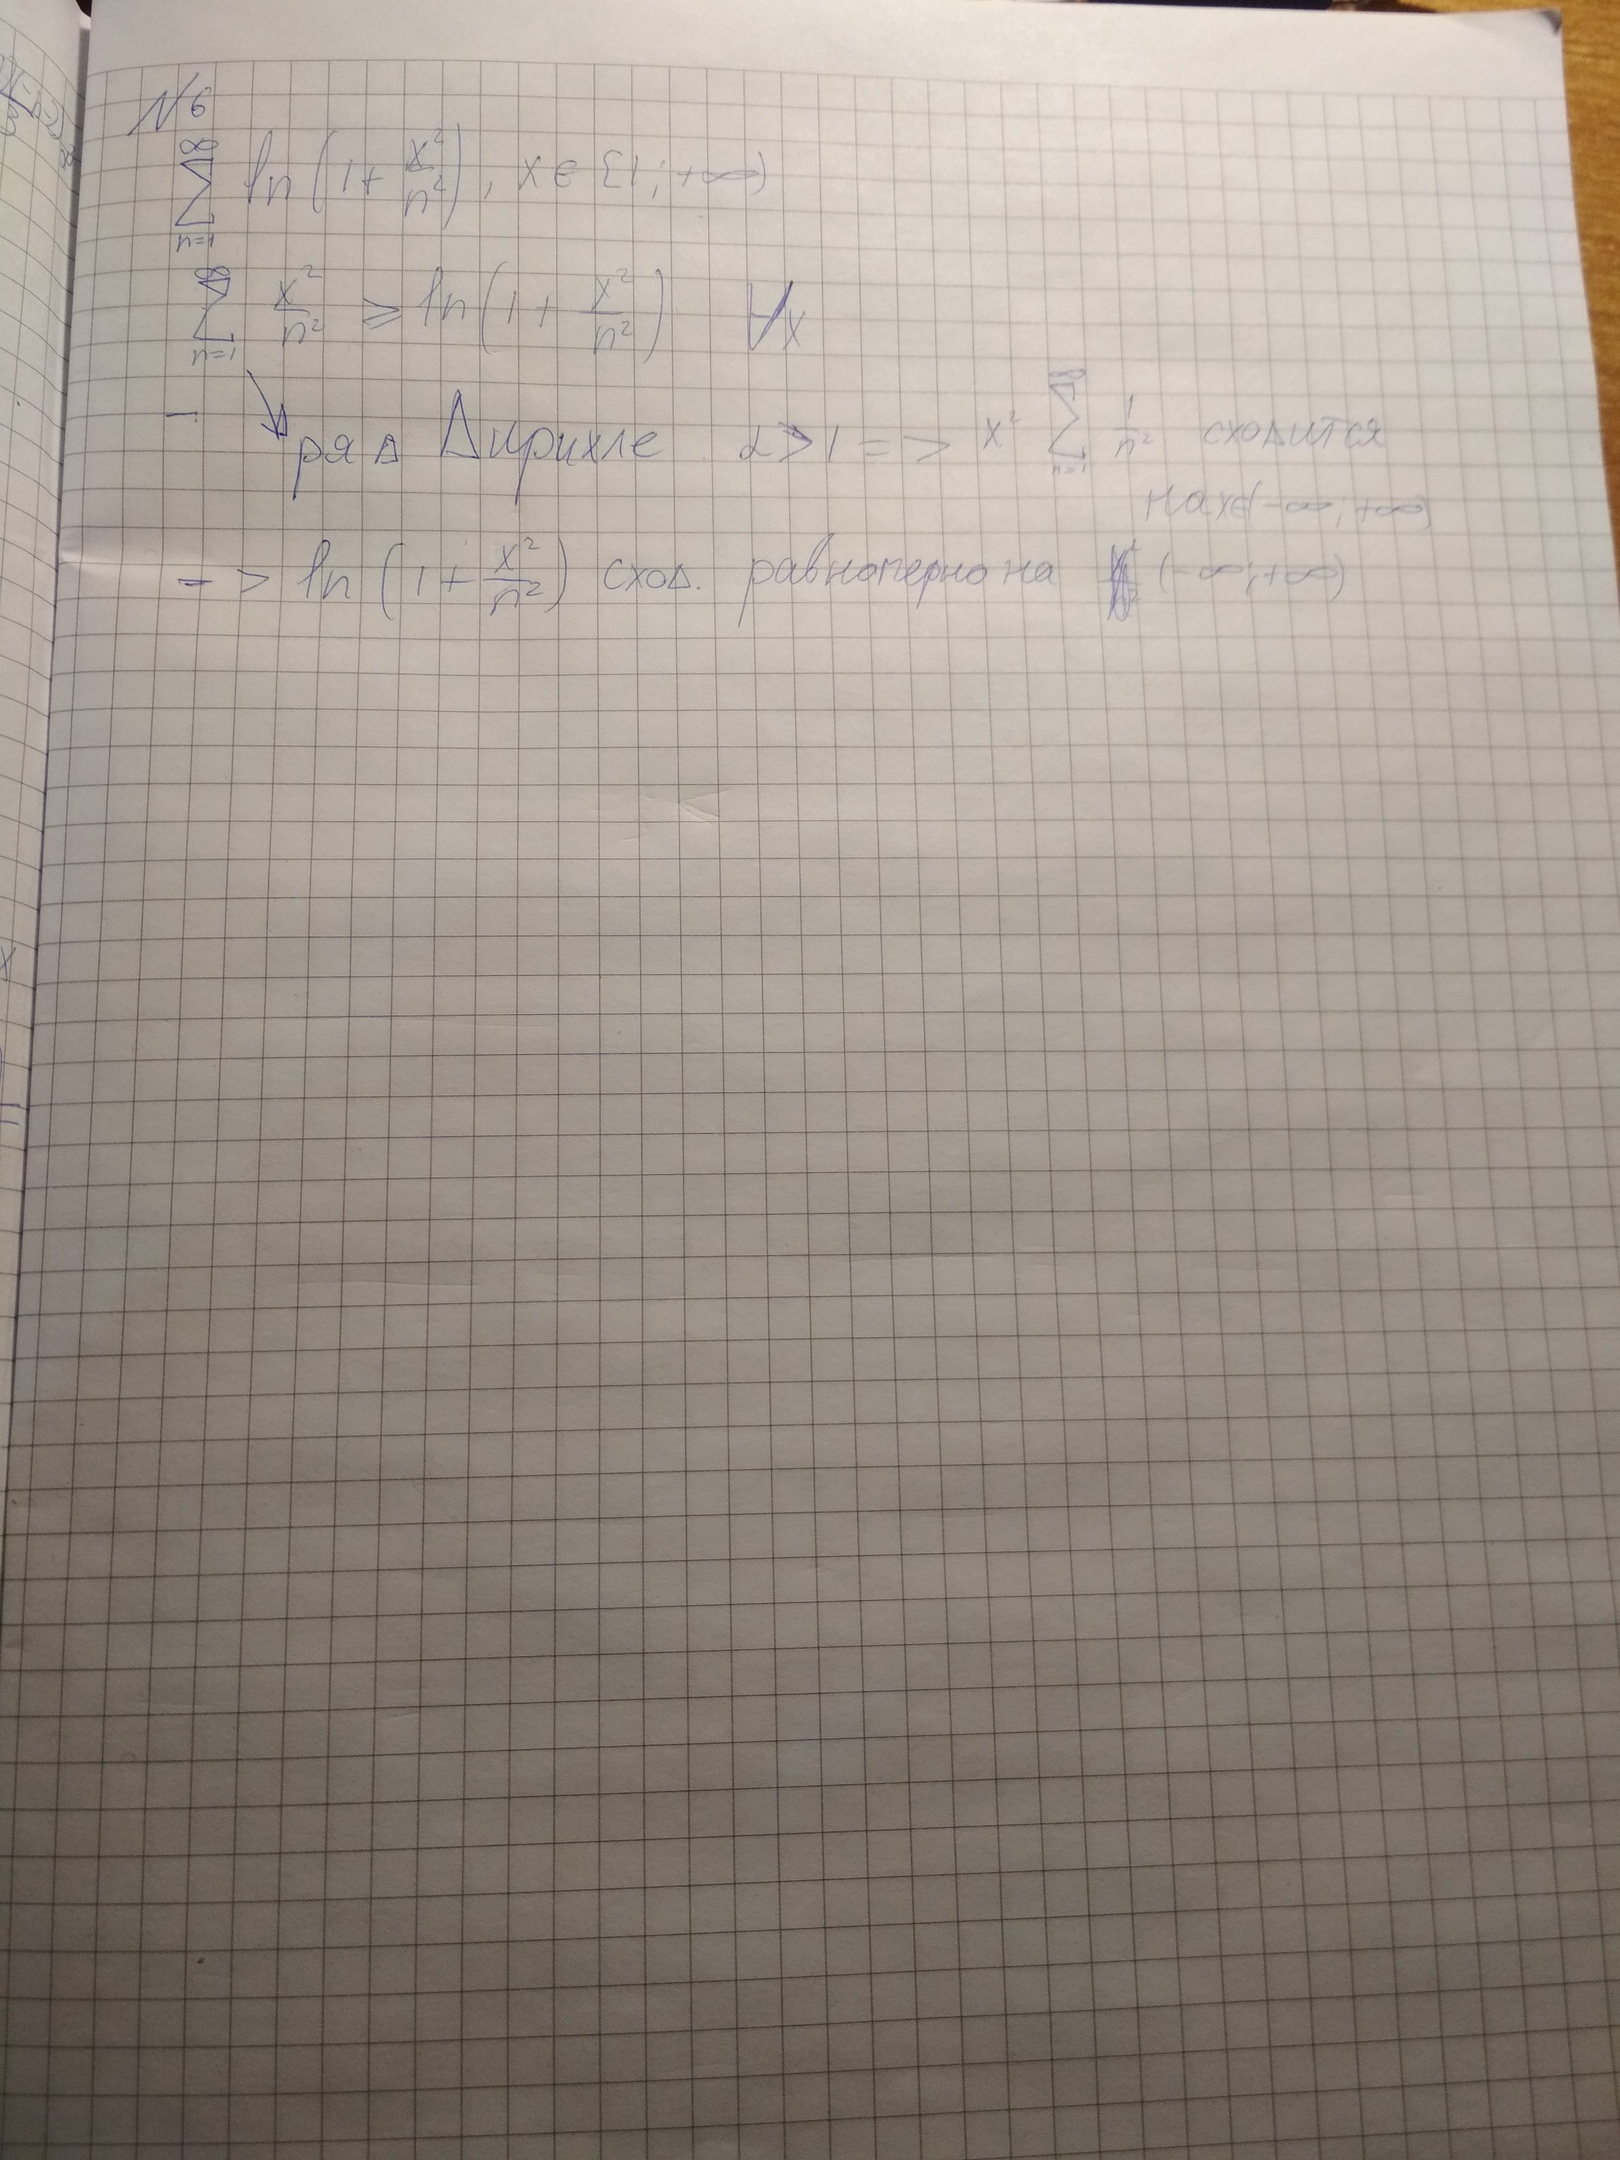 №6
∑_{n=1}^{∞} ln(1 + x²/n²), x ∈ [1; +∞)
∑_{n=1}^{∞} x²/n² ⩾ ln(1 + x²/n²) ∀x
ряд Дирихле α>1 => x² ∑_{n=1}^{∞} 1/n² сходится
на x∈(-∞; +∞)
-> ln(1 + x²/n²) сход. равномерно на (-∞; +∞)